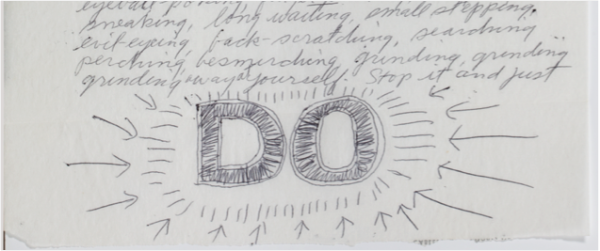 eyeball
sneaking, long waiting, small stepping,
evil-eyeing, back-scratching, searching,
perching, besmirching, grinding, grinding,
grinding away at yourself. Stop it and just
DO